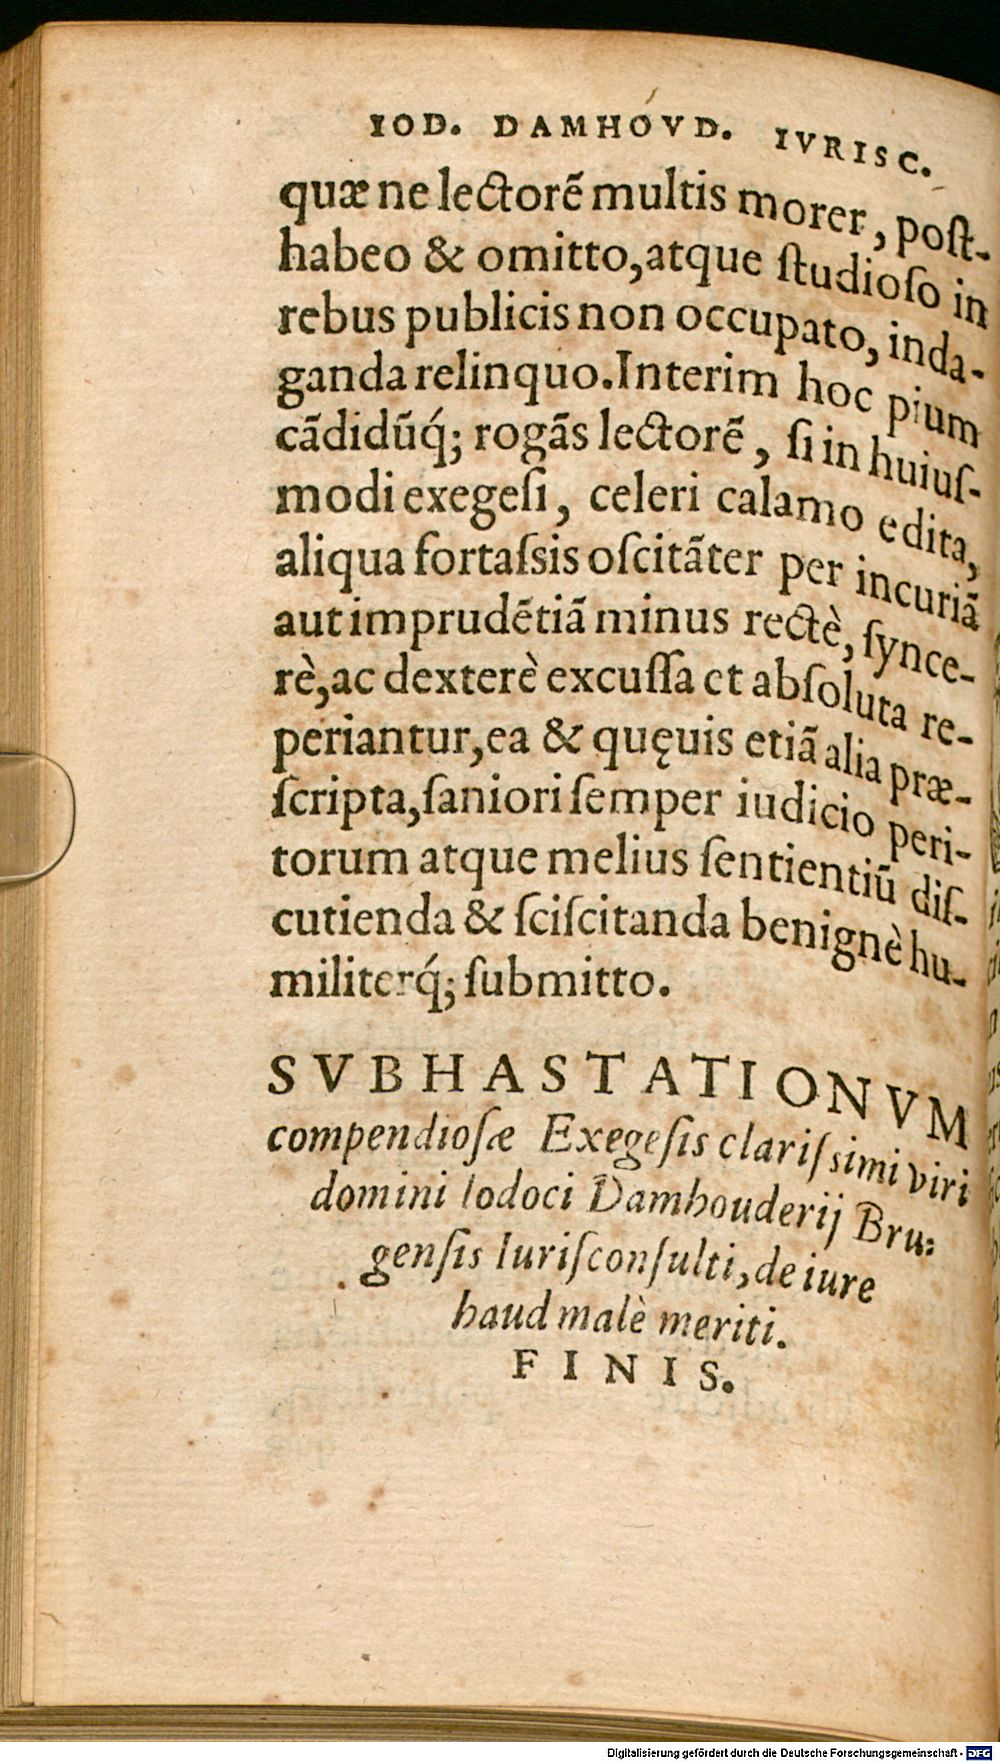 IOD. DAMHOVD. IVRISC.
quæ ne lectorẽ multis morer, post-
habeo & omitto, atque ſtudioſo in
rebus publicis non occupato, inda-
ganda relinquo. Interim hoc pium
cãdidũq́; rogãs lectorẽ, ſi in huiuſ-
modi exegeſi, celeri calamo edita,
aliqua fortaſsis oſcitãter per incuriã
aut imprudẽtiã minus rectè, ſynce-
rè, ac dexterè excuſſa et abſoluta re-
periantur, ea & quęuis etiã alia præ-
ſcripta, ſaniori ſemper iudicio peri-
torum atque melius ſentientiũ diſ-
cutienda & ſciſcitanda benignè hu-
militerq́; ſubmitto.
SVBHASTATIONVM
compendioſæ Exegeſis clariſsimi viri
domini Iodoci Damhouderij Bru-
genſis Iuriſconſulti, de iure
haud malè meriti.
FINIS.
Digitalisierung gefördert durch die Deutsche Forschungsgemeinschaft - DFG